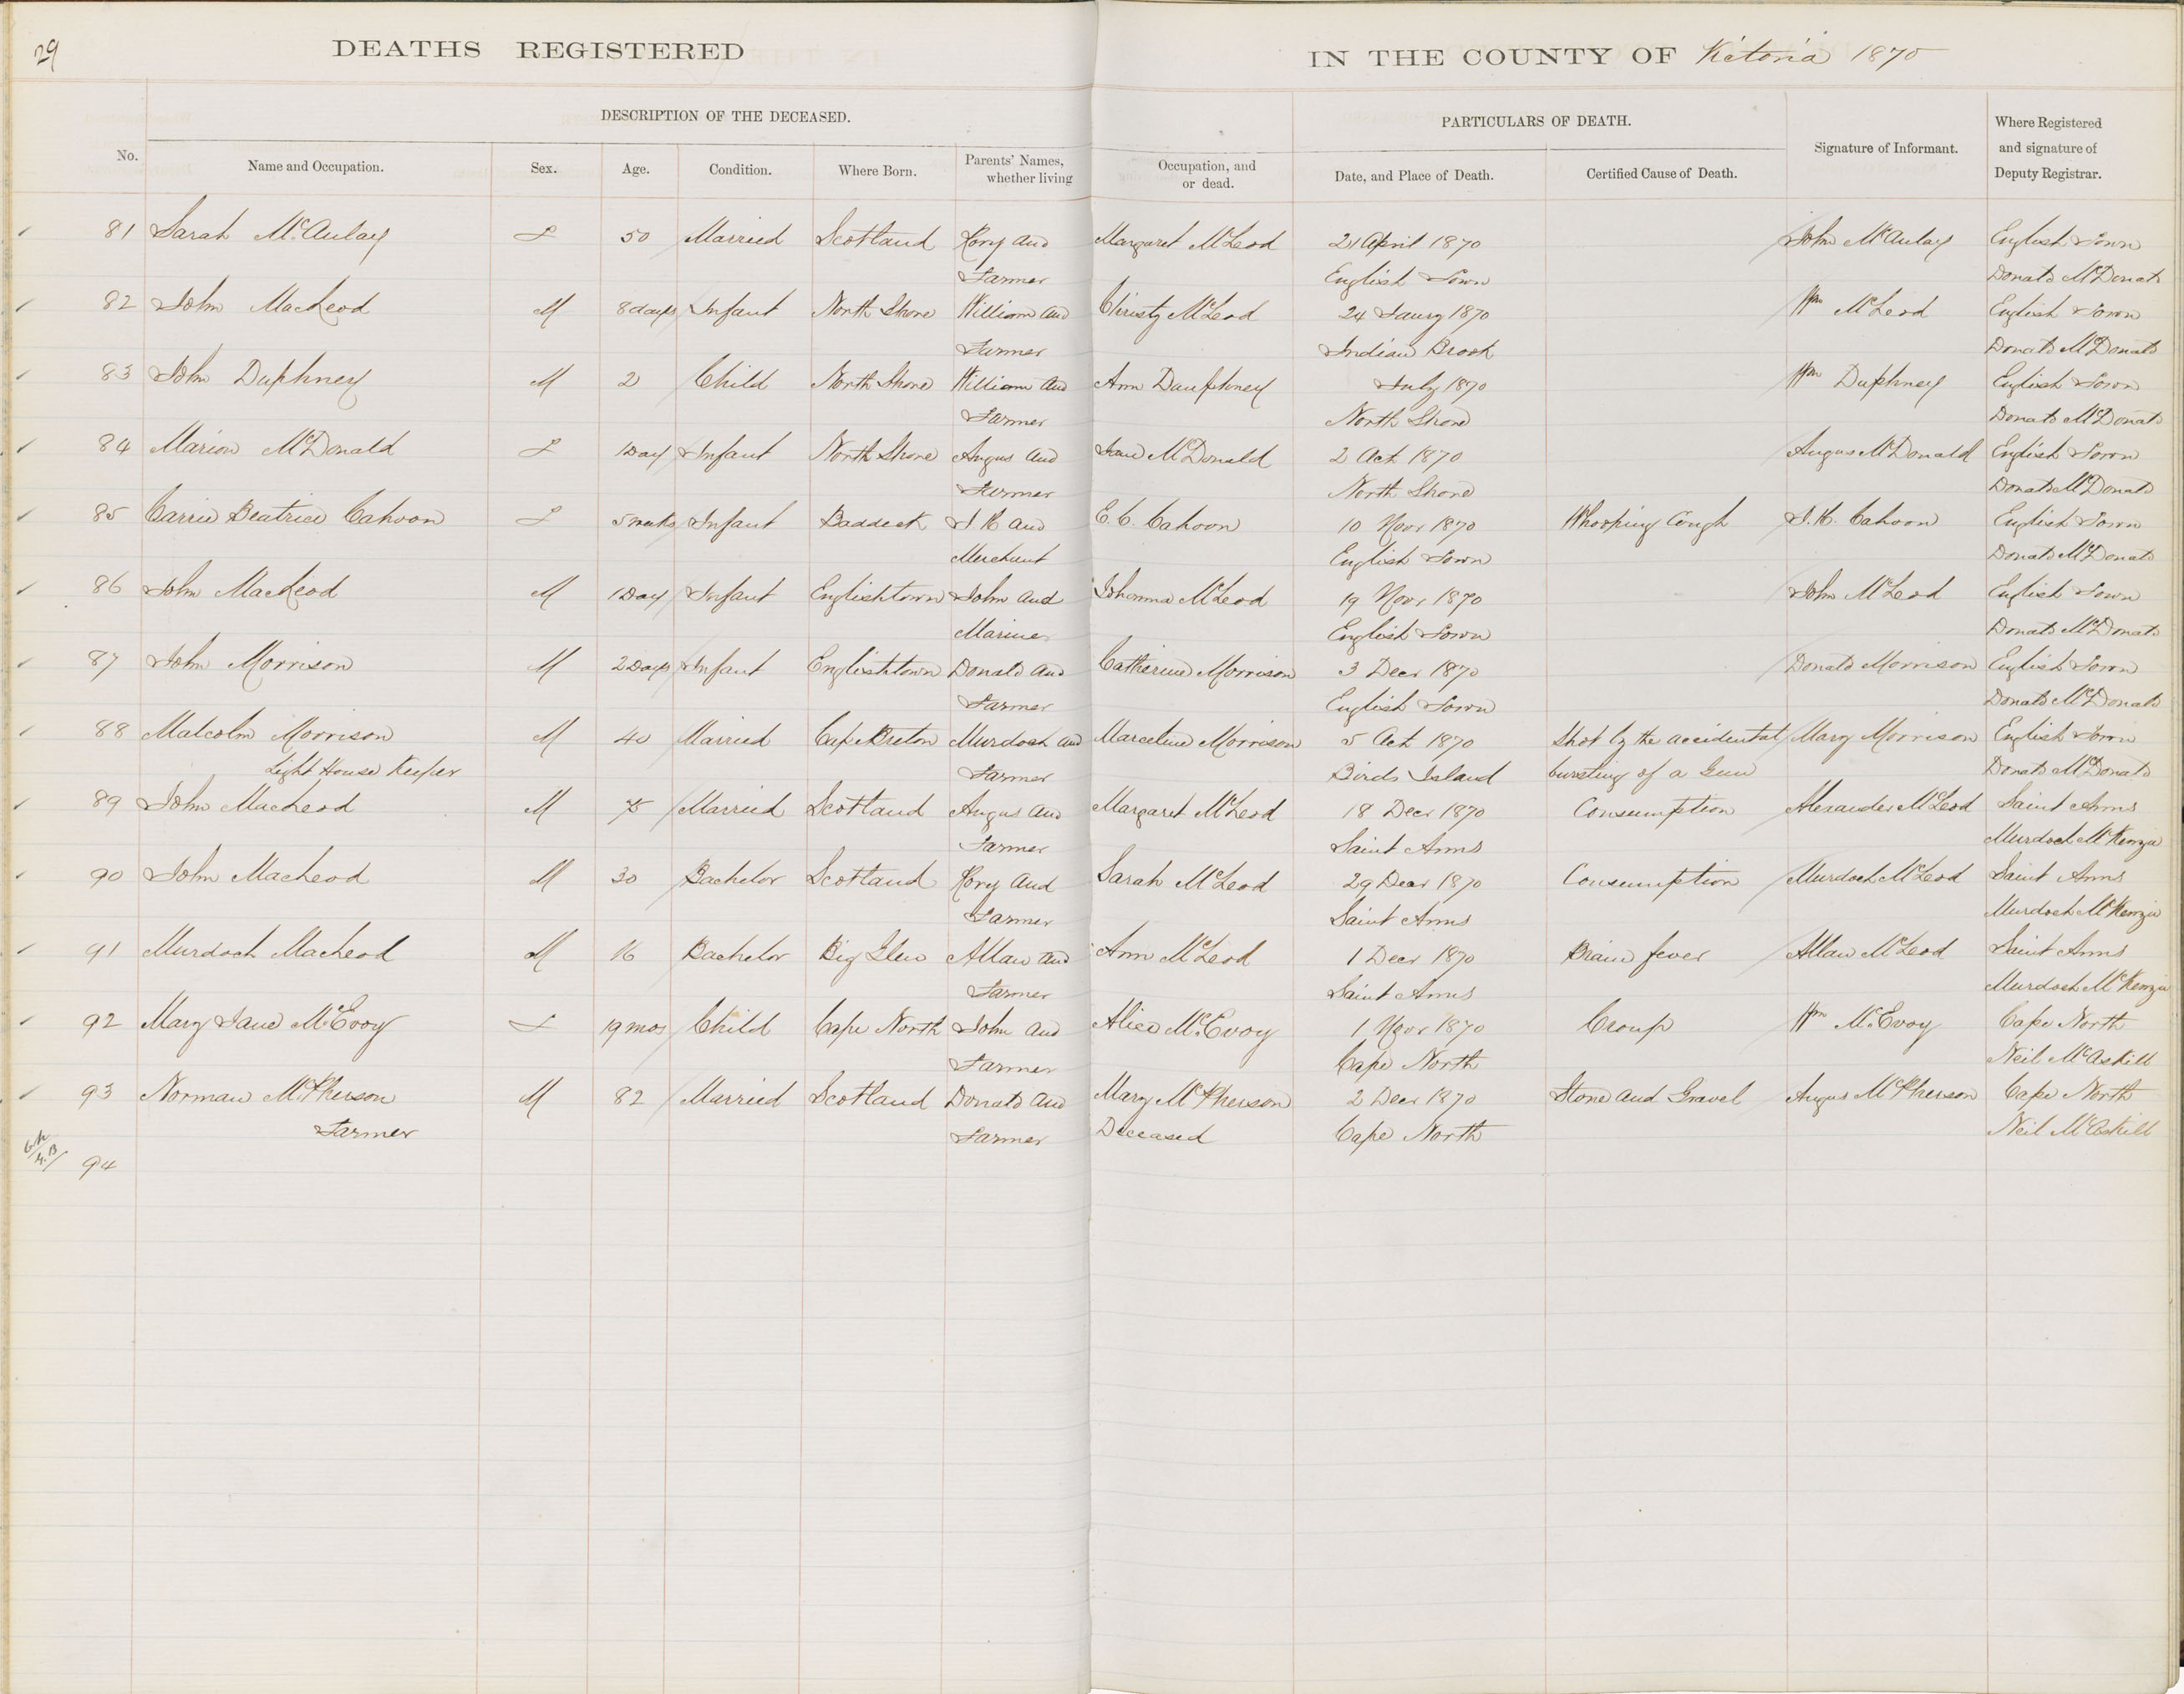 29
DEATHS REGISTERED IN THE COUNTY OF Victoria 1870
DESCRIPTION OF THE DECEASED. PARTICULARS OF DEATH.
No. Name and Occupation. Sex. Age. Condition. Where Born. Parents' Names, whether living Occupation, and or dead. Date, and Place of Death. Certified Cause of Death. Signature of Informant. Where Registered and signature of Deputy Registrar.
81 Sarah McAulay F 50 Married Scotland Rory and Margaret McLeod 21 April 1870 John McAulay English Town
Farmer English Town Donald McDonald
82 John MacLeod M 8 days Infant North Shore William and Christy McLeod 24 Jany 1870 Wm McLeod English Town
Farmer Indian Brook Donald McDonald
83 John Duphney M 2 Child North Shore William and Ann Dauphney July 1870 Wm Duphney English Town
Farmer North Shore Donald McDonald
84 Marion McDonald F 1 Day Infant North Shore Angus and Jane McDonald 2 Oct 1870 Angus McDonald English Town
Farmer North Shore Donald McDonald
85 Carrie Beatrice Cahoon F 5 weeks Infant Baddeck J H and E. C. Cahoon 10 Novr 1870 Whooping Cough J. H. Cahoon English Town
Merchant English Town Donald McDonald
86 John MacLeod M 1 Day Infant Englishtown John and Johanna McLeod 19 Novr 1870 John McLeod English Town
Mariner English Town Donald McDonald
87 John Morrison M 2 Days Infant Englishtown Donald and Catherine Morrison 3 Decr 1870 Donald Morrison English Town
Farmer English Town Donald McDonald
88 Malcolm Morrison M 40 Married Cape Breton Murdoch and Marceline Morrison 5 Oct 1870 Shot by the accidental Mary Morrison English Town
Light House Keeper Farmer Birds Island bursting of a Gun Donald McDonald
89 John MacLeod M 75 Married Scotland Angus and Margaret McLeod 18 Decr 1870 Consumption Alexander McLeod Saint Anns
Farmer Saint Anns Murdoch McKenzie
90 John MacLeod M 30 Bachelor Scotland Rory and Sarah McLeod 29 Decr 1870 Consumption Murdoch McLeod Saint Anns
Farmer Saint Anns Murdoch McKenzie
91 Murdoch MacLeod M 16 Bachelor Big Glen Allan and Ann McLeod 1 Decr 1870 Brain fever Allan McLeod Saint Anns
Farmer Saint Anns Murdoch McKenzie
92 Mary Jane McEvoy F 19 mos Child Cape North John and Alice McEvoy 1 Novr 1870 Croup Wm McEvoy Cape North
Farmer Cape North Neil McAskill
93 Norman McPherson M 82 Married Scotland Donald and Mary McPherson 2 Decr 1870 Stone and Gravel Angus McPherson Cape North
Farmer Farmer Deceased Cape North Neil McAskill
94